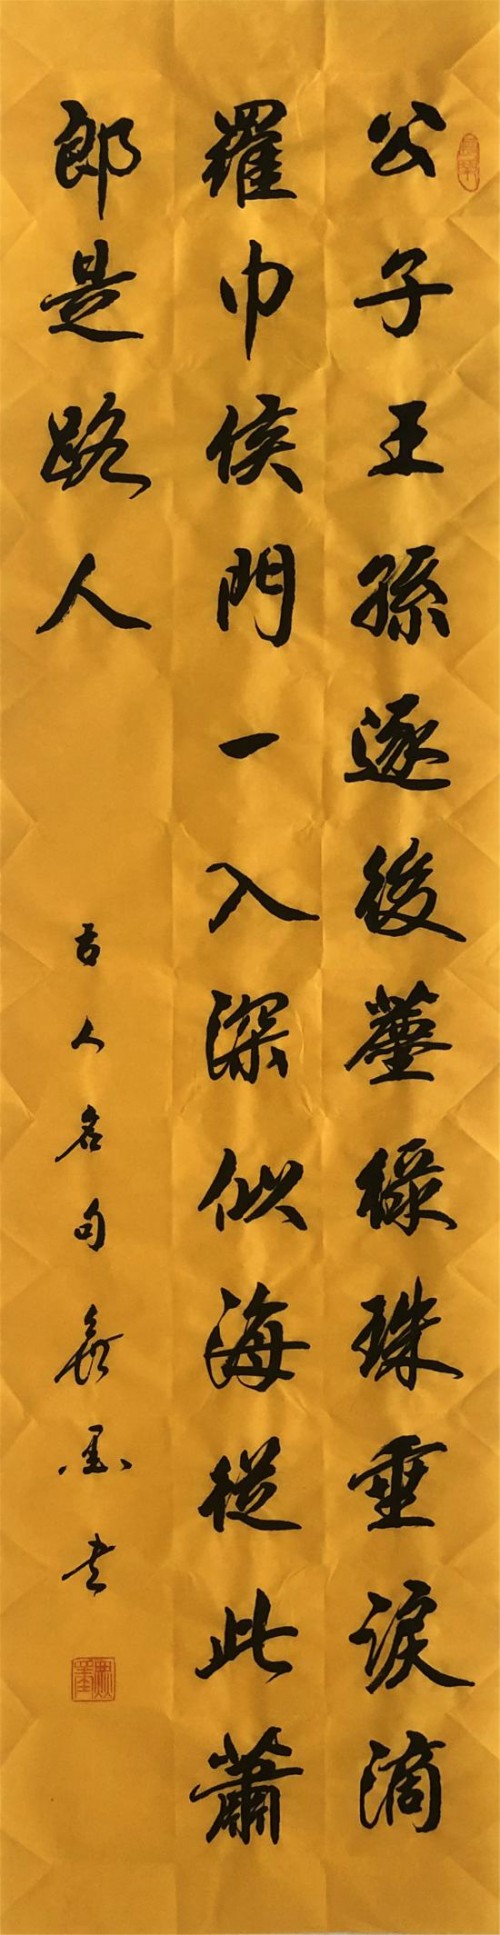 公子王孫逐後塵綠珠垂淚滴
羅巾侯門一入深似海從此蕭
郎是路人
古人名句 墨书